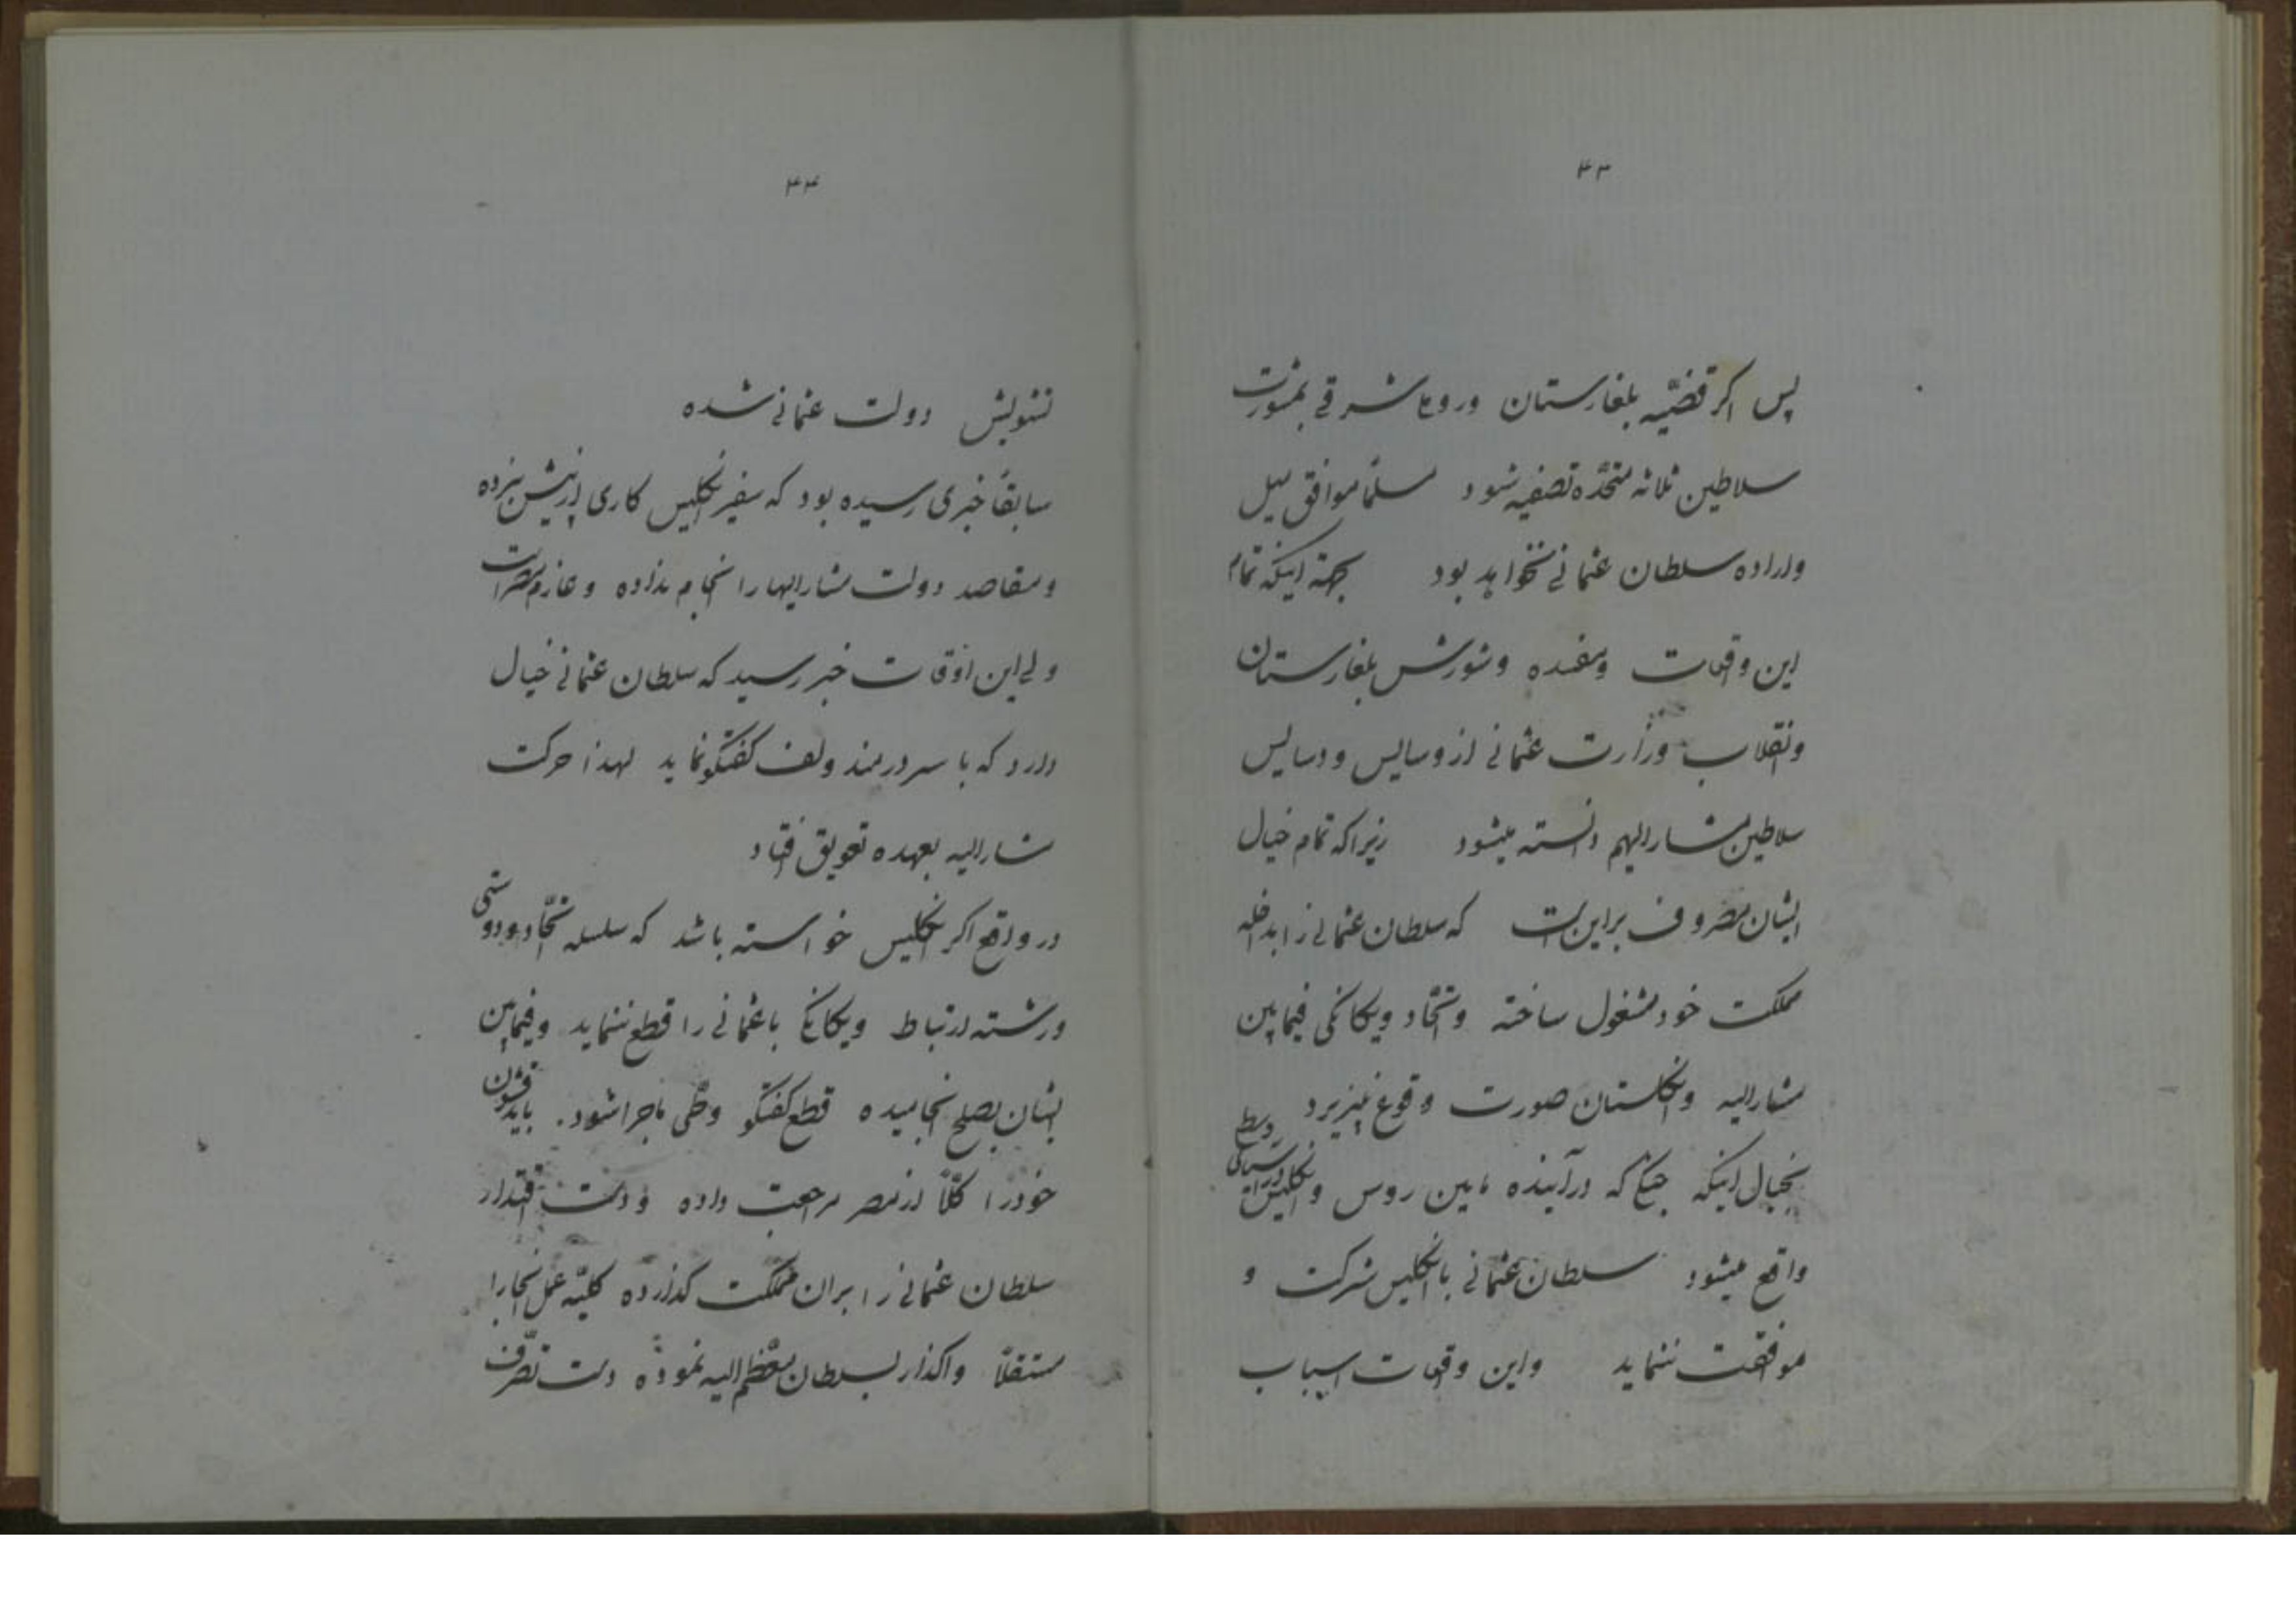 ۴۳
پس اکر قضیّه بلغارستان و روملی شرقی بمشورت
سلاطین ثلاثه متحدّه تصفیه شود مسلّماً موافق میل
و اراده سلطان عثمانی نخواهد بود بجهة اینکه تمام
این وقعات و مفسده و شورش بلغارستان
و انقلاب وزارت عثمانی از وسایس و دسایس
سلاطین مشارالیهم دانسته میشود زیرا که تمام خیال
ایشان مصروف بر این است که سلطان عثمانی را بداخله
مملکت خود مشغول ساخته و اتّحاد و یکانکی فیمابین
مشارالیه و انکلستان صورت وقوع نپذیرد
بخیال اینکه جنکی که در آینده مابین روس و انکلیس در آسیای وسطی
واقع میشود سلطان عثمانی با انکلیس شرکت و
موافقت ننماید و این وقعات اسباب
۴۴
تشویش دولت عثمانی شده
سابقاً خبری رسیده بود که سفیر انکلیس کاری از پیش نبرده
و مقاصد دولت مشارالیها را انجام نداده و عازم مصر است
ولی این اوقات خبر رسید که سلطان عثمانی خیال
دارد که با سر درمند ولف کفتکو نماید لهذا حرکت
مشارالیه بعهده تعویق افتاد
در واقع اکر انکلیس خواسته باشد که سلسله اتّحاد و دوستی
و رشته ارتباط و یکانکی با عثمانی را قطع ننماید و فیمابین
ایشان بصلح انجامیده قطع کفتکو و طّی ماجرا شود. باید قشون
خود را کلّاً از مصر مراجعت داده و دست اقتدار
سلطان عثمانی را بر آن مملکت کذارده کلیّه عمل آنجا را
مستقلّاً واکذار بسلطان معظّم الیه نموده دست تصرّف